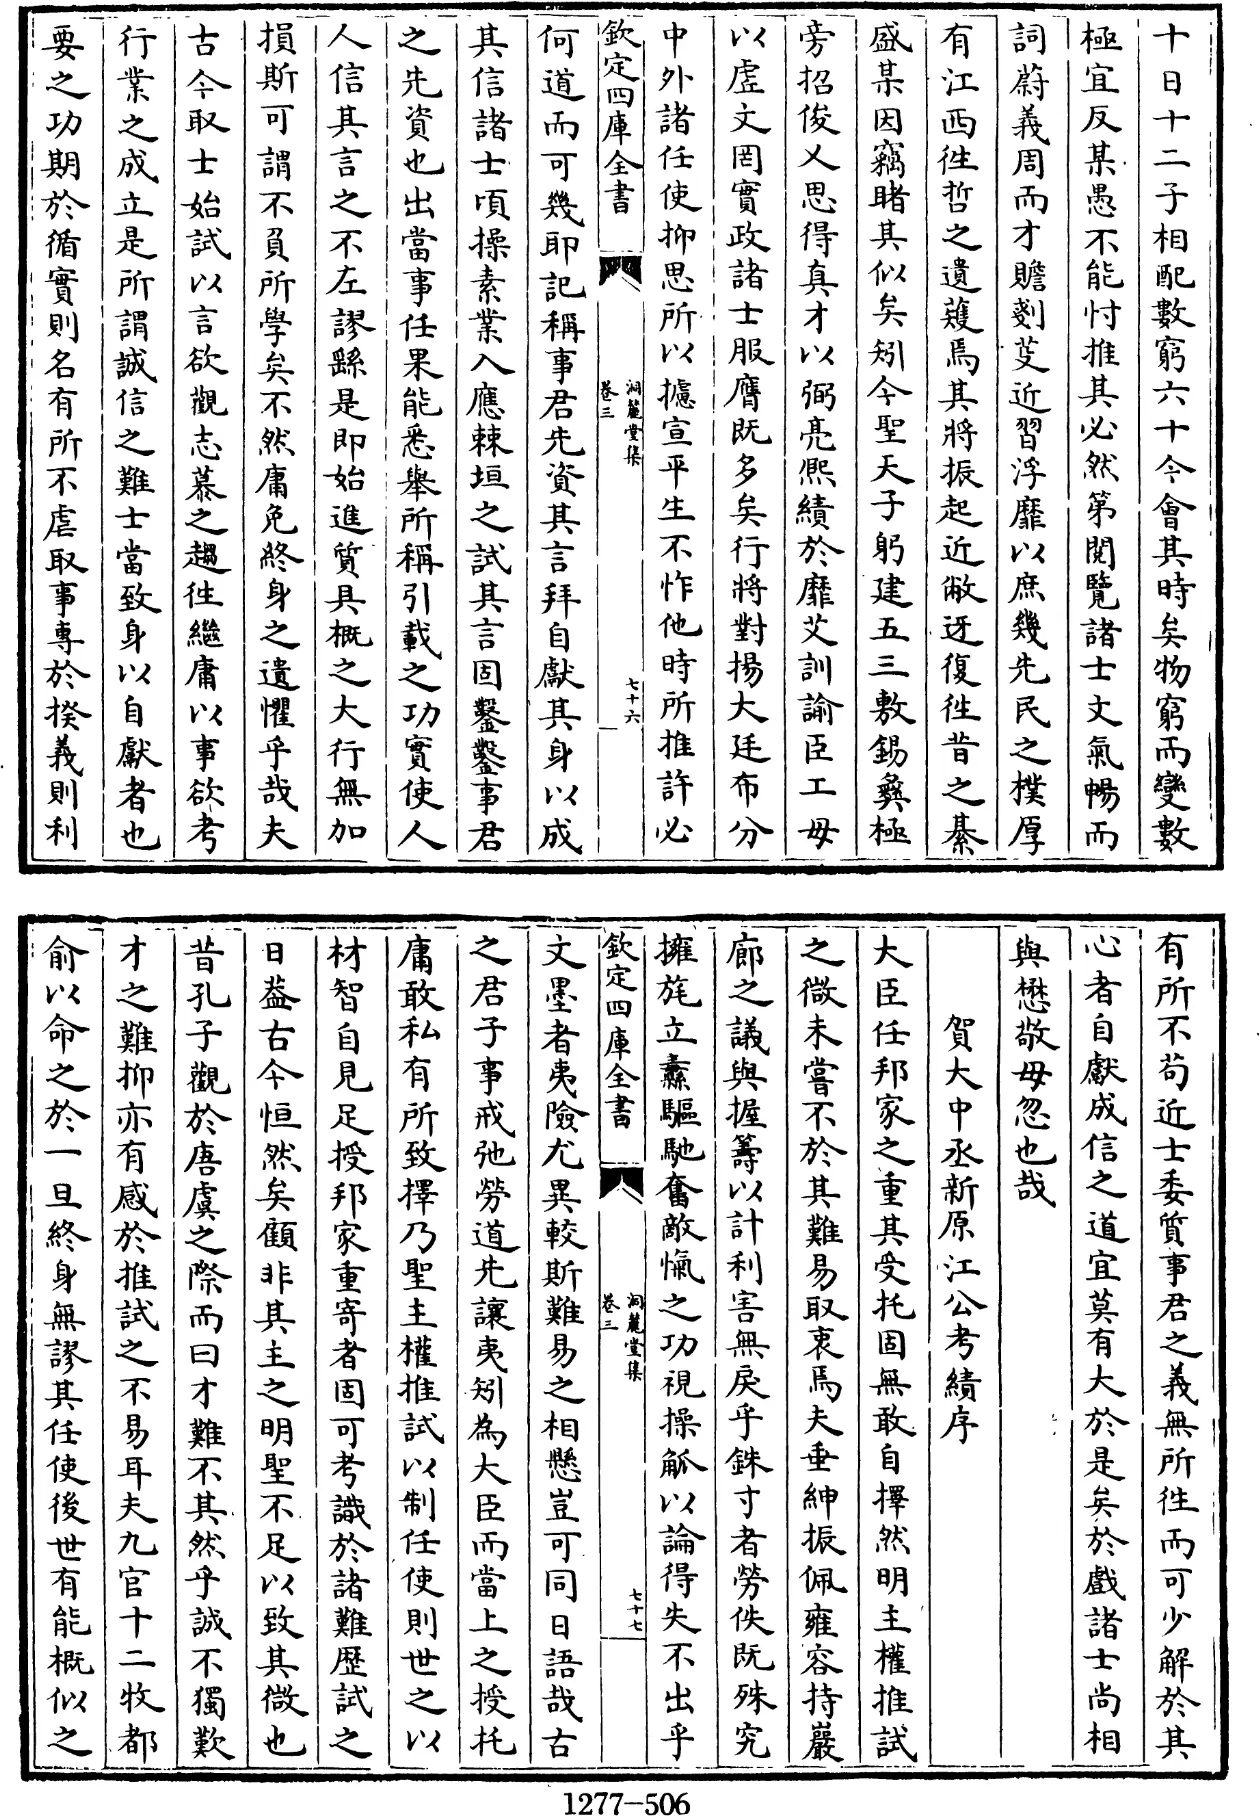 十日十二子相配數窮六十今會其時矣物窮而變數
極宜反某愚不能忖推其必然第閱覽諸士文氣暢而
詞蔚義周而才贍剗芟近習浮靡以庶幾先民之樸厚
有江西徃哲之遺薙焉其將振起近敝迓復徃昔之綦
盛某因竊睹其似矣矧今聖天子躬建五三敷錫彝極
旁招俊乂思得真才以弼亮熈績於靡艾訓諭臣工毋
以虛文罔實政諸士服膺既多矣行將對揚大廷布分
中外諸任使抑思所以攄宣平生不怍他時所推許必
欽定四庫全書
洞麓堂集
卷三
七十六
何道而可幾耶記稱事君先資其言拜自獻其身以成
其信諸士頃操素業入應棘垣之試其言固鑿鑿事君
之先資也出當事任果能悉舉所稱引載之功實使人
人信其言之不左謬繇是即始進質具概之大行無加
損斯可謂不負所學矣不然庸免終身之遺懼乎哉夫
古今取士始試以言欲觀志慕之趨徃繼庸以事欲考
行業之成立是所謂誠信之難士當致身以自獻者也
要之功期於循實則名有所不虐取事專於揆義則利
有所不苟近士委質事君之義無所徃而可少解於其
心者自獻成信之道宜莫有大於是矣於戲諸士尚相
與懋敬毋忽也哉
賀大中丞新原江公考績序
大臣任邦家之重其受托固無敢自擇然明主權推試
之微未嘗不於其難易取衷焉夫垂紳振佩雍容持巖
廊之議與握籌以計利害無戾乎銖寸者勞佚既殊究
擁旄立纛驅馳奮敵愾之功視操觚以論得失不出乎
欽定四庫全書
洞麓堂集
卷三
七十七
文墨者夷險尤異較斯難易之相懸豈可同日語哉古
之君子事戒弛勞道先讓夷矧為大臣而當上之授托
庸敢私有所致擇乃聖主權推試以制任使則世之以
材智自見足授邦家重寄者固可考識於諸難歷試之
日葢古今恒然矣顧非其主之明聖不足以致其微也
昔孔子觀於唐虞之際而曰才難不其然乎誠不獨歎
才之難抑亦有感於推試之不易耳夫九官十二牧都
俞以命之於一旦終身無謬其任使後世有能概似之
1277—506